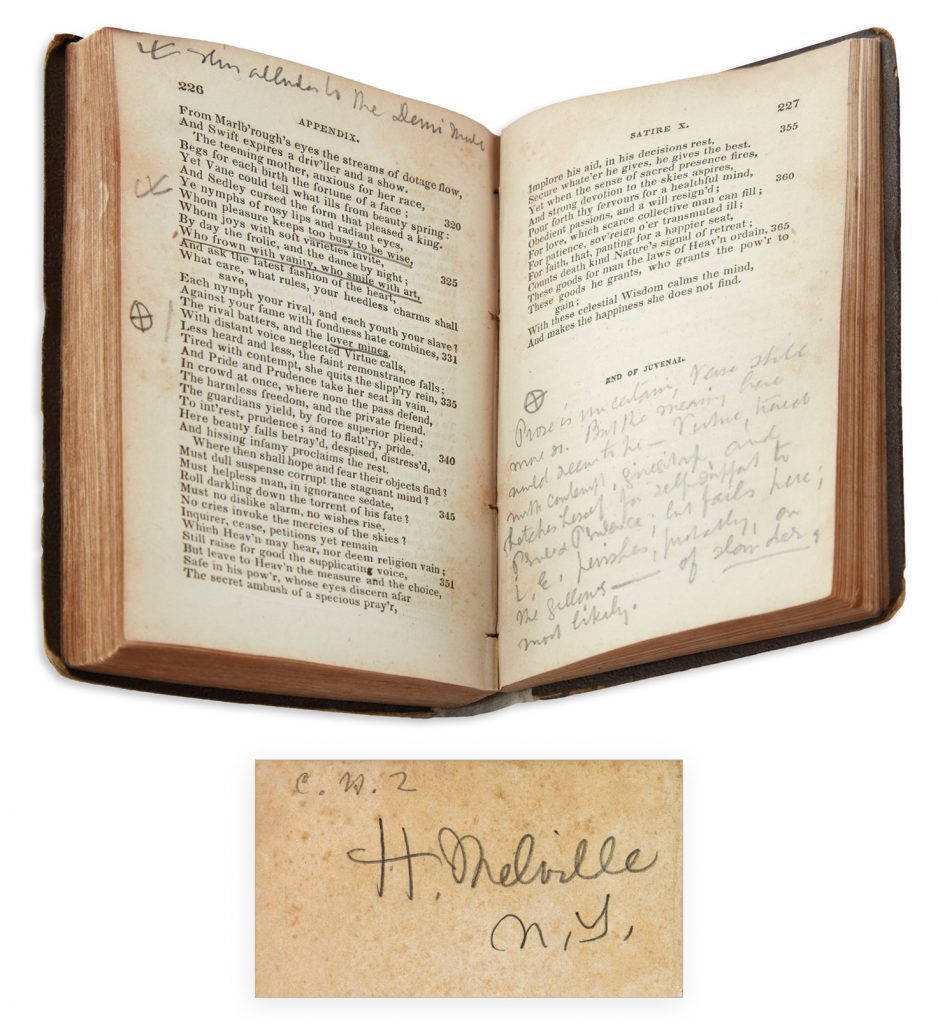 This alludes to the Demi Monde
226
APPENDIX.
From Marlb'rough's eyes the streams of dotage flow,
And Swift expires a driv'ller and a show.
The teeming mother, anxious for her race,
Begs for each birth the fortune of a face; 320
Yet Vane could tell what ills from beauty spring;
And Sedley cursed the form that pleased a king.
Ye nymphs of rosy lips and radiant eyes,
Whom pleasure keeps too busy to be wise,
Whom joys with soft varieties invite, 325
By day the frolic, and the dance by night;
Who frown with vanity, who smile with art,
And ask the latest fashion of the heart,
What care, what rules, your heedless charms shall
save,
Each nymph your rival, and each youth your slave?
Against your fame with fondness hate combines, 331
The rival batters, and the lover mines.
With distant voice neglected Virtue calls,
Less heard and less, the faint remonstrance falls;
Tired with contempt, she quits the slipp'ry rein, 335
And Pride and Prudence take her seat in vain.
In crowd at once, where none the pass defend,
The harmless freedom, and the private friend.
The guardians yield, by force superior plied;
To int'rest, prudence; and to flatt'ry, pride. 340
Here beauty falls betray'd, despised, distress'd,
And hissing infamy proclaims the rest.
Where then shall hope and fear their objects find?
Must dull suspense corrupt the stagnant mind?
Must helpless man, in ignorance sedate, 345
Roll darkling down the torrent of his fate?
Must no dislike alarm, no wishes rise,
No cries invoke the mercies of the skies?
Inquirer, cease, petitions yet remain
Which Heav'n may hear, nor deem religion vain;
Still raise for good the supplicating voice, 351
But leave to Heav'n the measure and the choice,
Safe in his pow'r, whose eyes discern afar
The secret ambush of a specious pray'r,
227
SATIRE X.
Implore his aid, in his decisions rest, 355
Secure whate'er he gives, he gives the best.
Yet when the sense of sacred presence fires,
And strong devotion to the skies aspires,
Pour forth thy fervours for a healthful mind,
Obedient passions, and a will resign'd; 360
For love, which scarce collective man can fill;
For patience, sov'reign o'er transmuted ill;
For faith, that, panting for a happier seat,
Counts death kind Nature's signal of retreat; 365
These goods for man the laws of Heav'n ordain,
These goods he grants, who grants the pow'r to
gain;
With these celestial Wisdom calms the mind,
And makes the happiness she does not find.
END OF JUVENAL.
Prose is uncertain, Verse still
more so. But the meaning here
would seem to be — Virtue, treated
with contempt, gives it up and
betakes herself for self-support to
Pride & Prudence; but fails here;
i.e. perishes, probably, on
the gallows — of slander,
most likely.
C. H. 2
H. Melville
N.Y.